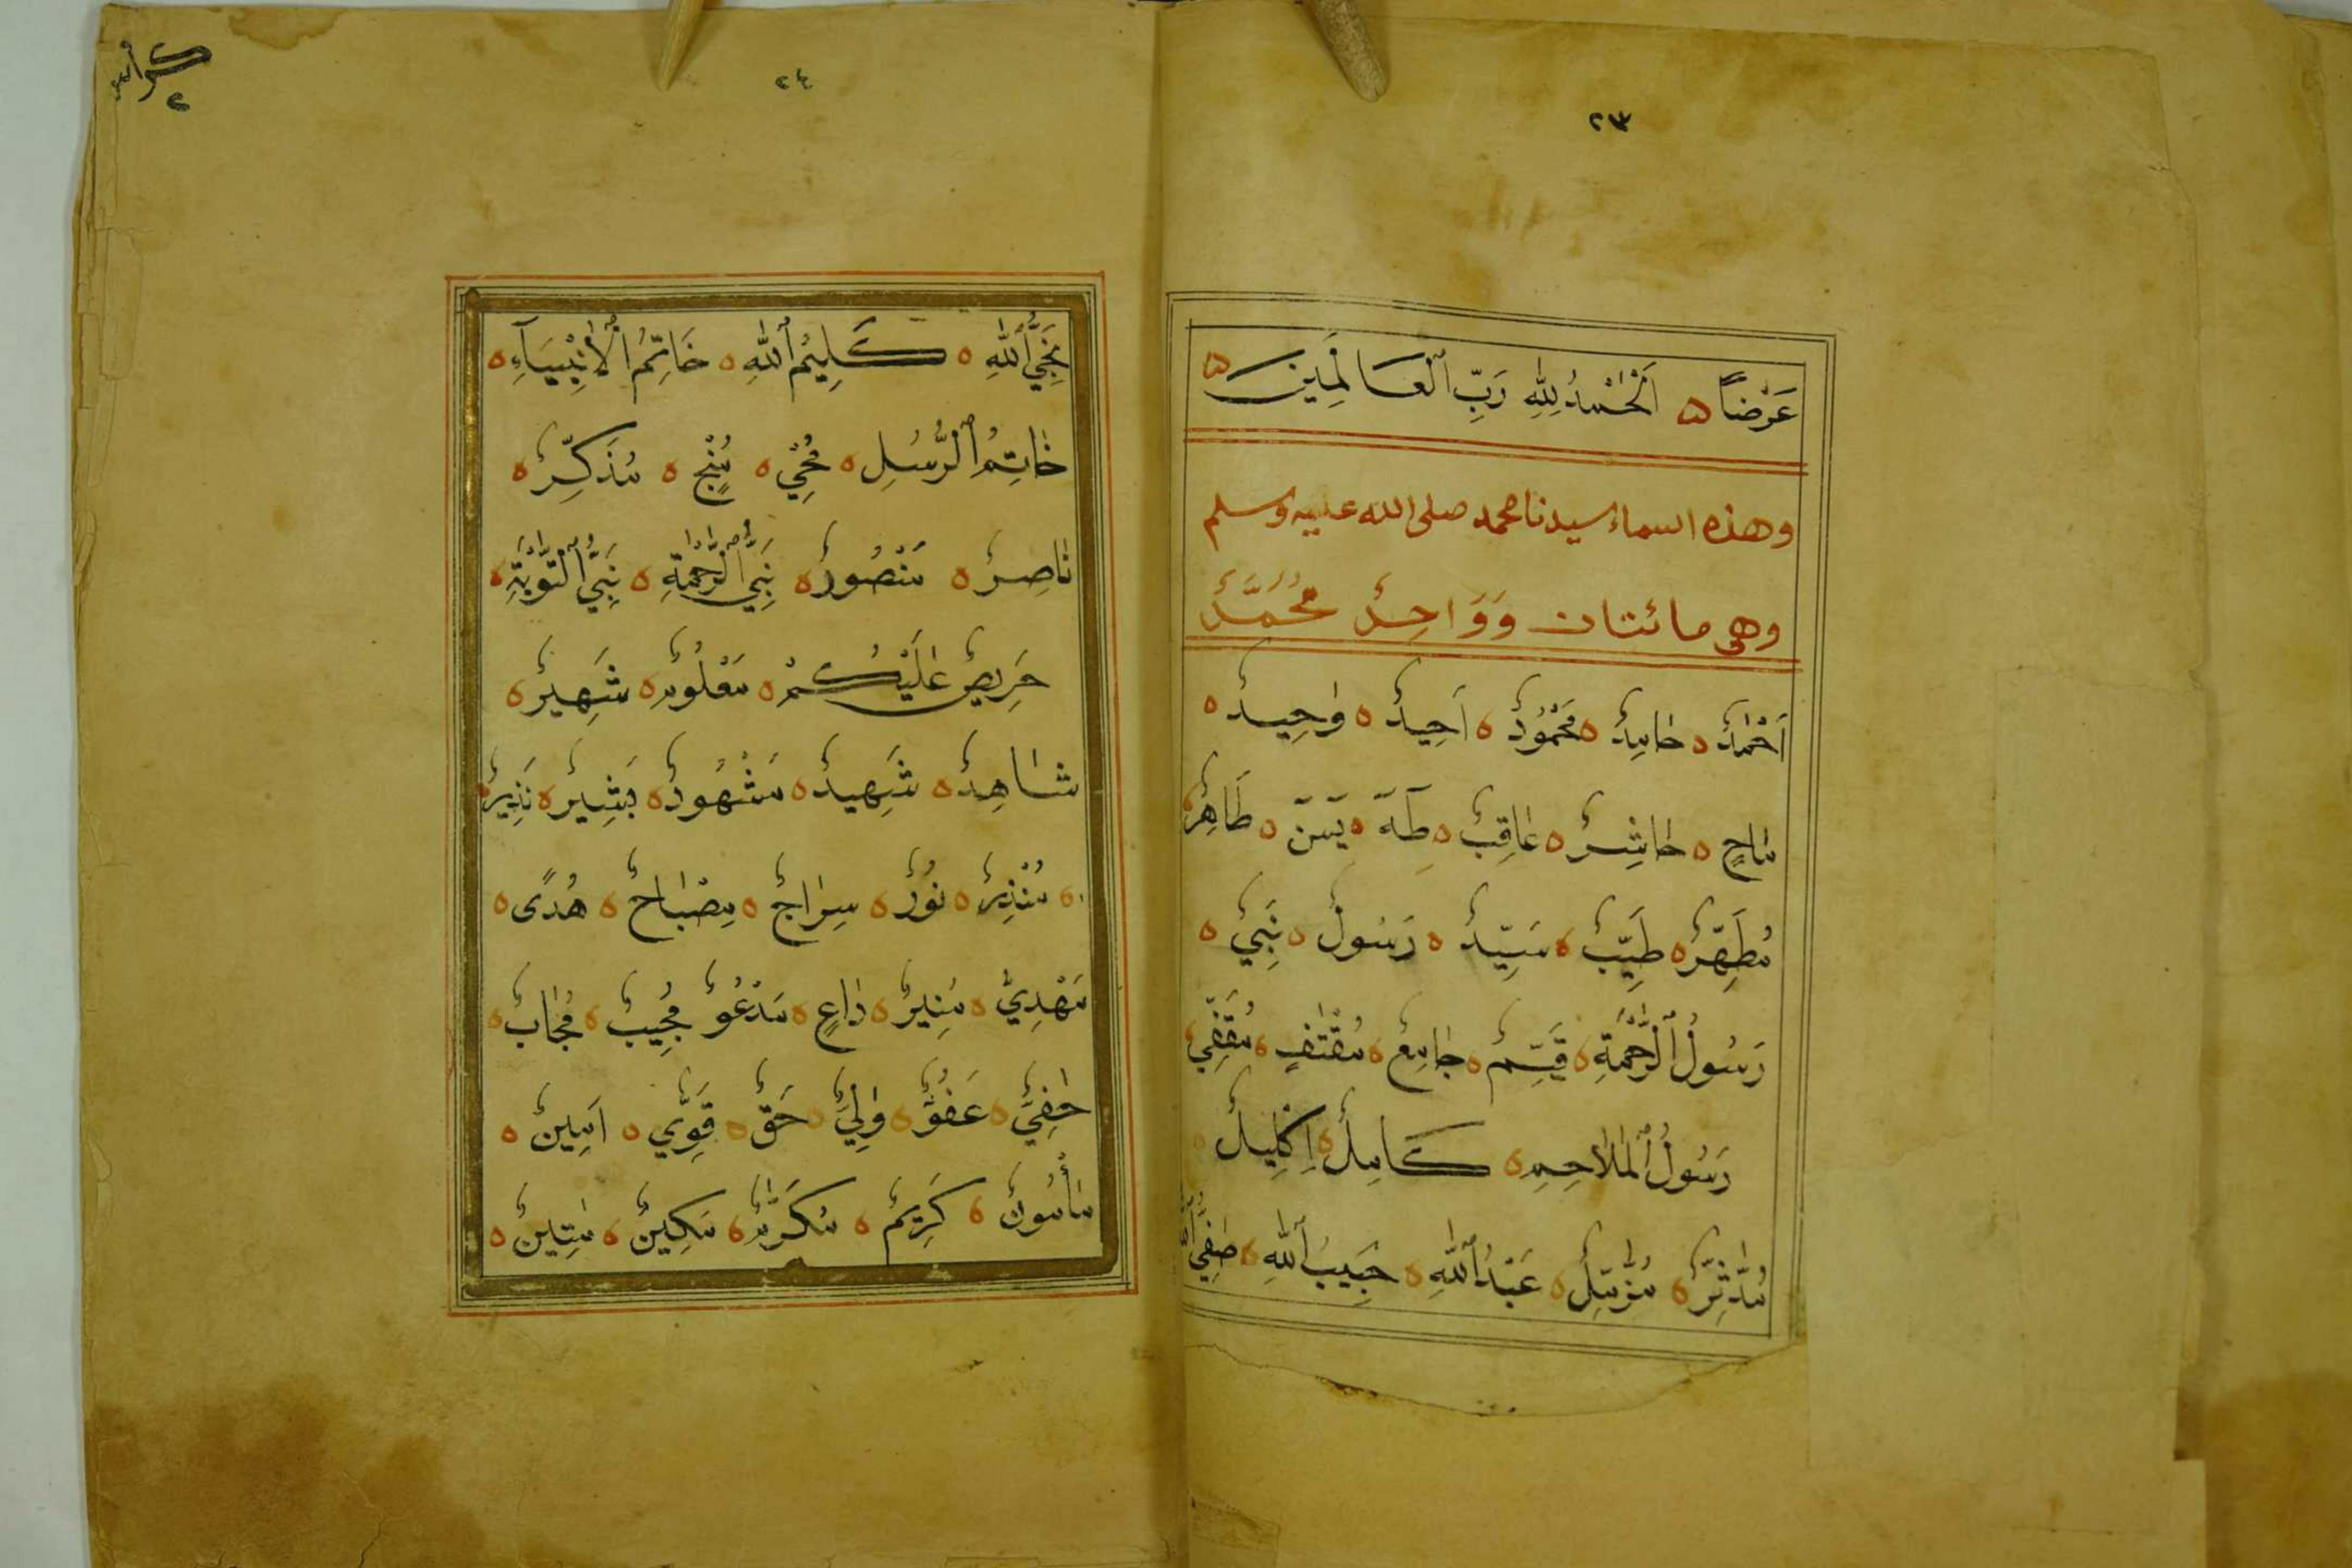 ٢٣
عَرْضًا ه اَلْحَمْدُ لِلّٰهِ رَبِّ ٱلْعَالَمِينَ ه
وهذه اسماء سيدنا محمد صلى الله عليه وسلم
وهى مائتان وَوَاحِدٌ مُحَمَّدٌ
اَحْمَدٌ ه حَامِدٌ ه مَحْمُودٌ ه اَحِيدٌ ه وَحِيدٌ ه
مَاحٍ ه حَاشِرٌ ه عَاقِبٌ ه طَهَ ه يَسَن ه طَاهِرٌ
مُطَهَّرٌ ه طَيِّبٌ ه سَيِّدٌ ه رَسُولٌ ه نَبِيٌّ ه
رَسُولُ ٱلرَّحْمَةِ ه قَيِّمٌ ه جَامِعٌ ه مُقْتَفٍ ه مُقَفِّيٌ
رَسُولُ ٱلْمَلَاحِمِ ه كَامِلٌ ه اِكْلِيلٌ ه
مُدَّثِّرٌ ه مُزَّمِّلٌ ه عَبْدُ ٱللّٰهِ ه حَبِيبُ ٱللّٰهِ ه صَفِيُّ ٱللّٰهِ
٢٤
كراس
٢
نَجِيُّ ٱللّٰهِ ه كَلِيمُ ٱللّٰهِ ه خَاتِمُ ٱلْأَنْبِيَآءِ ه
خَاتِمُ ٱلرُّسُلِ ه مُحْيٍ ه مُنْجٍ ه مُذَكِّرٌ ه
نَاصِرٌ ه مَنْصُورٌ ه نَبِيُّ ٱلرَّحْمَةِ ه نَبِيُّ ٱلتَّوْبَةِ ه
حَرِيصٌ عَلَيْكُمْ ه مَعْلُومٌ ه شَهِيرٌ ه
شَاهِدٌ ه شَهِيدٌ ه مَشْهُودٌ ه بَشِيرٌ ه نَذِيرٌ
ه مُنْذِرٌ ه نُورٌ ه سِرَاجٌ ه مِصْبَاحٌ ه هُدًى ه
مَهْدِيٌّ ه مُنِيرٌ ه دَاعٍ ه مَدْعُوٌّ مُجِيبٌ ه مُجَابٌ ه
حَفِيٌّ ه عَفُوٌّ ه وَلِيٌّ ه حَقٌّ ه قَوِيٌّ ه اَمِينٌ ه
مَأْمُونٌ ه كَرِيمٌ ه مُكَرَّمٌ ه مَكِينٌ ه مَتِينٌ ه